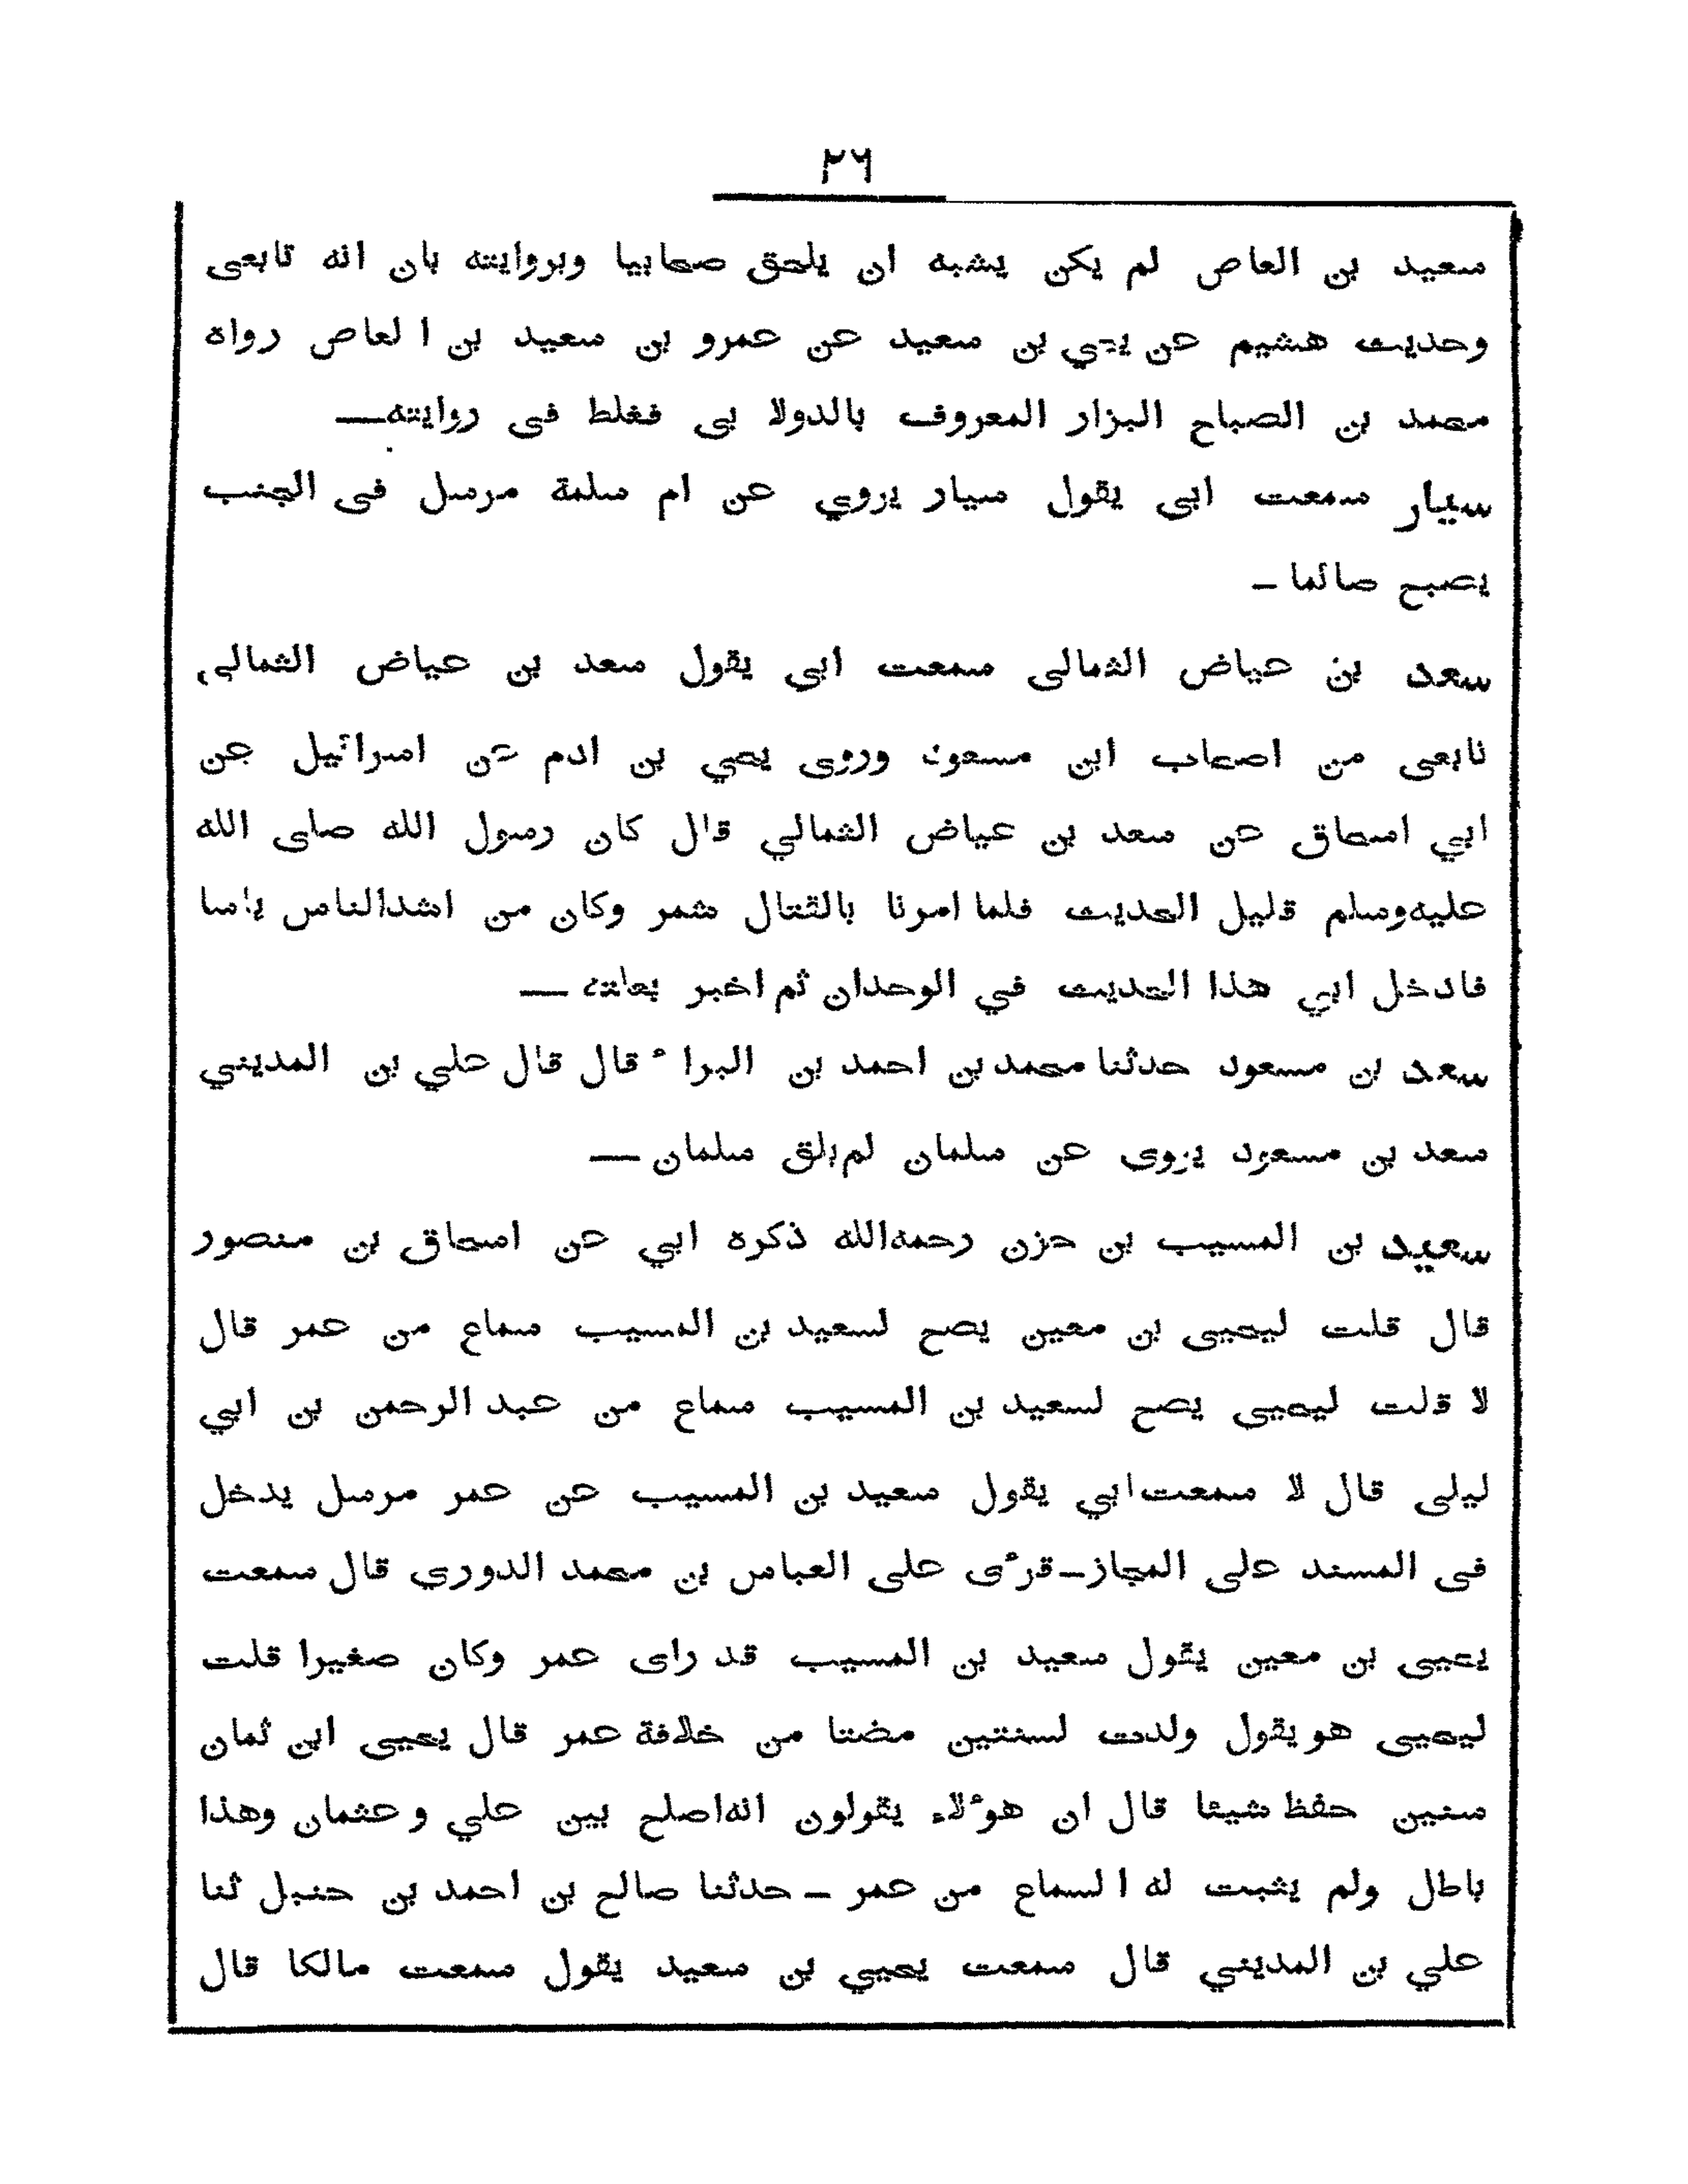 ٢٦
سعيد بن العاص لم يكن يشبه ان يلحق صحابيا وبروايته بان انه تابعى
وحديث هشيم عن يحي بن سعيد عن عمرو بن سعيد بن العاص رواه
محمد بن الصباح البزار المعروف بالدولا بى فغلط فى روايته—
سيار سمعت ابى يقول سيار يروي عن ام سلمة مرسل فى الجنب
يصبح صائما –
سعد بن عياض الثمالى سمعت ابي يقول سعد بن عياض الثمالى
تابعى من اصحاب ابن مسعود وروى يحي بن ادم عن اسرائيل عن
ابي اسحاق عن سعد بن عياض الثمالي قال كان رسول الله صلى الله
عليه وسلم قليل الحديث فلما امرنا بالقتال شمر وكان من اشد الناس باسا
فادخل ابي هذا الحديث في الوحدان ثم اخبر بعلته —
سعد بن مسعود حدثنا محمد بن احمد بن البراء قال قال علي بن المديني
سعد بن مسعود يروى عن سلمان لم يلق سلمان —
سعيد بن المسيب بن حزن رحمه الله ذكره ابي عن اسحاق بن منصور
قال قلت ليحيى بن معين يصح لسعيد بن المسيب سماع من عمر قال
لا قلت ليحيى يصح لسعيد بن المسيب سماع من عبد الرحمن بن ابي
ليلى قال لا سمعت ابي يقول سعيد بن المسيب عن عمر مرسل يدخل
فى المسند على المجاز – قرئ على العباس بن محمد الدوري قال سمعت
يحيى بن معين يقول سعيد بن المسيب قد راى عمر وكان صغيرا قلت
ليحيى هو يقول ولدت لسنتين مضتا من خلافة عمر قال يحيى ابن ثمان
سنين حفظ شيئا قال ان هؤلاء يقولون انه اصلح بين علي وعثمان وهذا
باطل ولم يثبت له السماع من عمر – حدثنا صالح بن احمد بن حنبل ثنا
علي بن المديني قال سمعت يحيي بن سعيد يقول سمعت مالكا قال